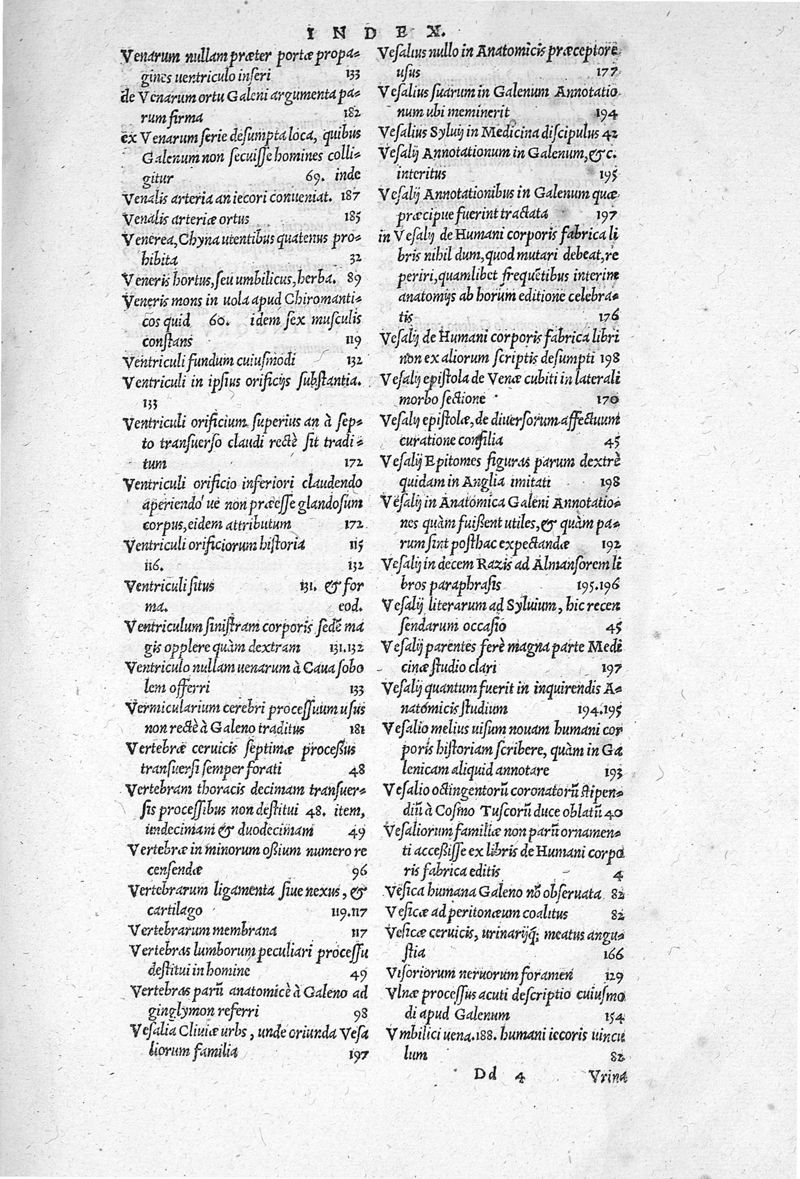 INDEX.
Venarum nullam præter portæ propa-
gines uentriculo inseri 133
de Venarum ortu Galeni argumenta pa-
rum firma 182
ex Venarum serie desumpta loca, quibus
Galenum non secuisse homines colli-
gitur 69. inde
Venalis arteria an iecori conueniat. 187
Venalis arteriæ ortus 185
Venerea, Chyna utentibus quatenus pro-
hibita 32
Veneris hortus, seu umbilicus, herba. 89
Veneris mons in uola apud Chiromanti-
cos quid 60. idem sex musculis
constans 119
Ventriculi fundum cuiusmodi 132
Ventriculi in ipsius orificijs substantia.
133
Ventriculi orificium superius an à sep-
to transuerso claudi rectè sit tradi-
tum 172
Ventriculi orificio inferiori claudendo
aperiendo' ue non præesse glandosum
corpus, eidem attributum 172
Ventriculi orificiorum historia 115
116. 132
Ventriculi situs 131. & for
ma. eod.
Ventriculum sinistram corporis sedē ma
gis opplere quàm dextram 131.132
Ventriculo nullam uenarum à Caua sobo
lem offerri 133
Vermicularium cerebri processuum usus
non rectè à Galeno traditus 181
Vertebræ ceruicis septimæ processus
transuersi semper forati 48
Vertebram thoracis decimam transuer-
sis processibus non destitui 48. item,
undecimam & duodecimam 49
Vertebræ in minorum ossium numero re
censendæ 96
Vertebrarum ligamenta siue nexus, &
cartilago 119.117
Vertebrarum membrana 117
Vertebras lumborum peculiari processu
destitui in homine 49
Vertebras parū anatomicè à Galeno ad
ginglymon referri 98
Vesalia Cliuiæ urbs, unde oriunda Vesa
liorum familia 197
Vesalius nullo in Anatomicis præceptore
usus 177
Vesalius suarum in Galenum Annotatio
num ubi meminerit 194
Vesalius Syluij in Medicina discipulus 42
Vesalij Annotationum in Galenum, &c.
interitus 195
Vesalij Annotationibus in Galenum quæ
præcipue fuerint tractata 197
in Vesalij de Humani corporis fabrica li
bris nihil dum, quod mutari debeat, re
periri, quamlibet frequētibus interim
anatomijs ab horum editione celebra-
tis 176
Vesalij de Humani corporis fabrica libri
non ex aliorum scriptis desumpti 198
Vesalij epistola de Venæ cubiti in laterali
morbo sectione 170
Vesalij epistolæ, de diuersorum affectuum
curatione consilia 45
Vesalij Epitomes figuras parum dextrè
quidam in Anglia imitati 198
Vesalij in Anatomica Galeni Annotatio-
nes quàm fuissent utiles, & quàm pa-
rum sint posthac expectandæ 192
Vesalij in decem Razis ad Almansorem li
bros paraphrasis 195.196
Vesalij literarum ad Syluium, hic recen
sendarum occasio 45
Vesalij parentes ferè magna parte Medi
cinæ studio clari 197
Vesalij quantum fuerit in inquirendis A-
natomicis studium 194.195
Vesalio melius uisum nouam humani cor
poris historiam scribere, quàm in Ga
lenicam aliquid annotare 193
Vesalio octingentorū coronatorū stipen-
diū à Cosmo Tuscorū duce oblatū 40
Vesaliorum familiæ non parū ornamen-
ti accessisse ex libris de Humani corpo
ris fabrica editis 4
Vesica humana Galeno nō obseruata 82
Vesicæ ad peritonæum coalitus 82
Vesicæ ceruicis, urinarijq́; meatus angu-
stia 166
Visoriorum neruorum foramen 129
Vlnæ processus acuti descriptio cuiusmo
di apud Galenum 154
Vmbilici uena. 188. humani iecoris uincu
lum 82
Dd 4 Vrina